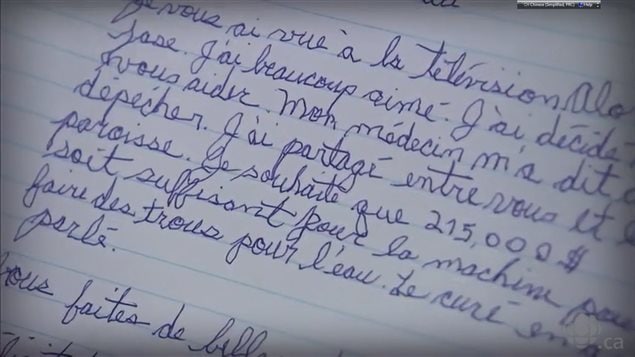 Chinese (Simplified, PRC) Help
Je vous ai vue à la télévision. Alo
jase. J'ai beaucoup aimé. J'ai décidé
vous aider. Mon médecin m'a dit d
dépêcher. J'ai partagé entre vous et l
paroisse. Je souhaite que 215,000 $
soit suffisant pour la machine pour
faire des trous pour l'eau. Le curé en
parlé.
Vous faites de bell
.ca